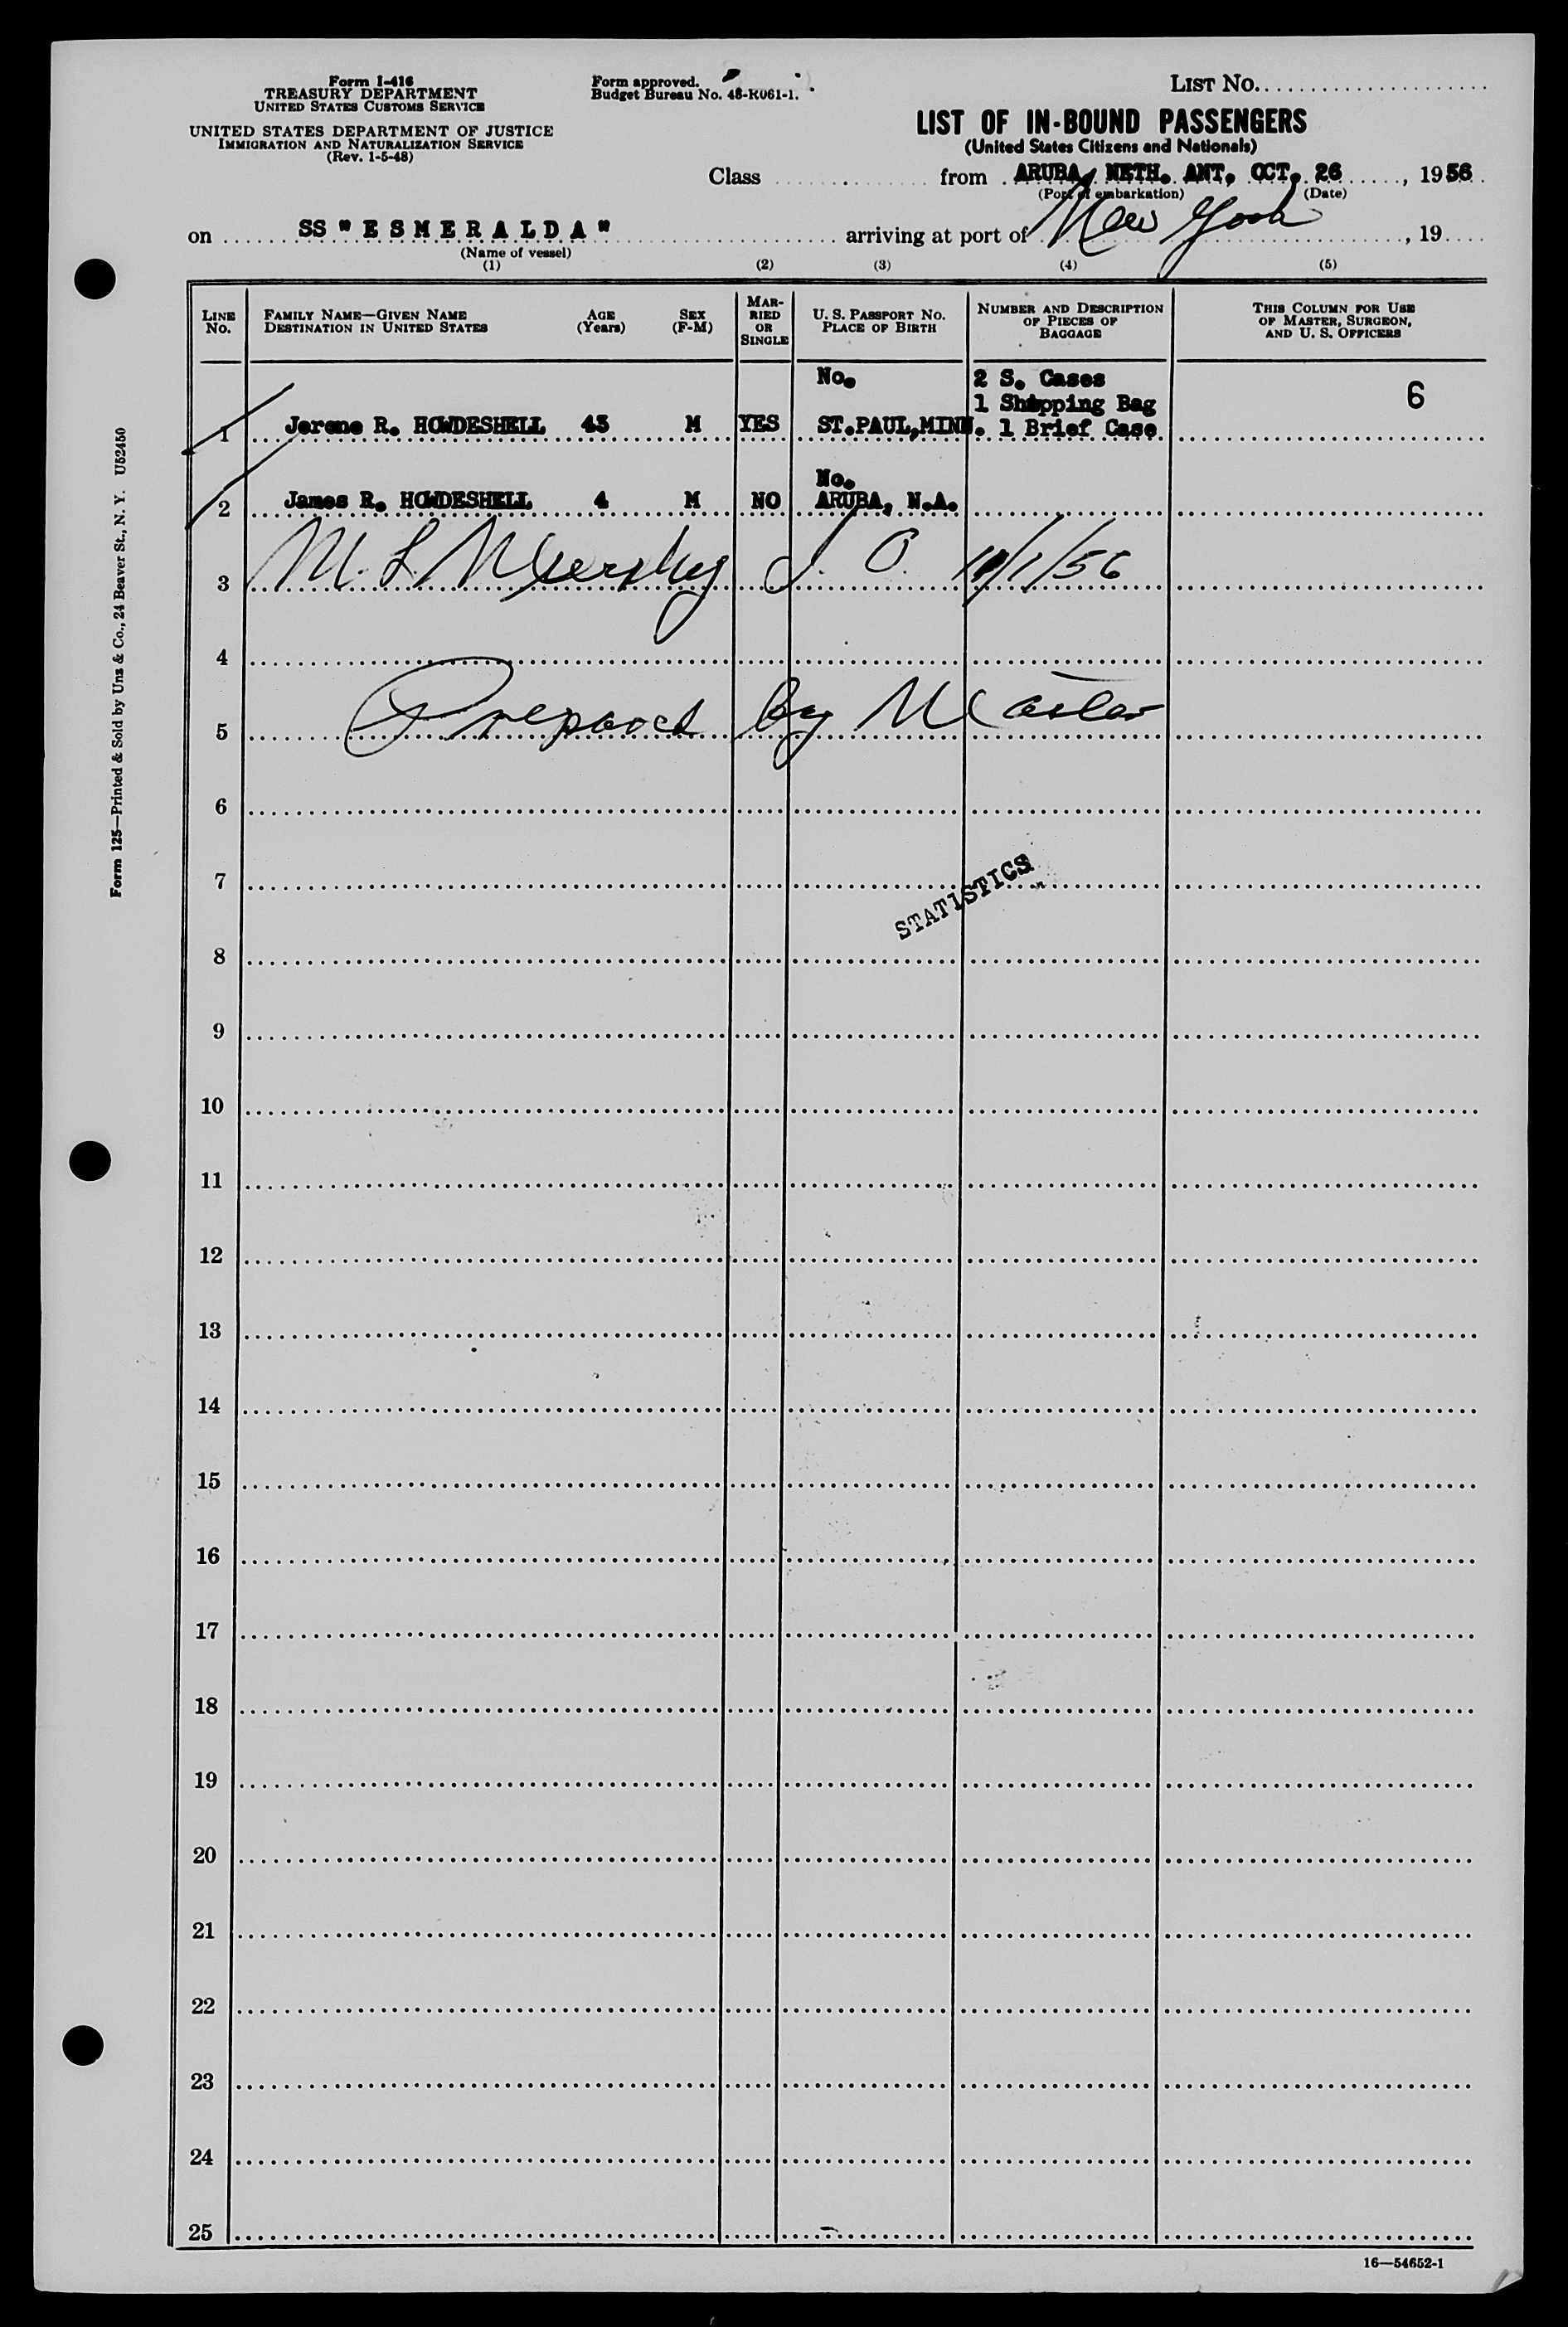 Form I-416
TREASURY DEPARTMENT
UNITED STATES CUSTOMS SERVICE
UNITED STATES DEPARTMENT OF JUSTICE
IMMIGRATION AND NATURALIZATION SERVICE
(Rev. 1-5-48)
Form approved.
Budget Bureau No. 43-R061-1.
LIST No.
LIST OF IN-BOUND PASSENGERS
(United States Citizens and Nationals)
Class from ARUBA, NETH. ANT. OCT. 26, 1956
(Port of embarkation) (Date)
on SS "ESMERALDA" arriving at port of New York, 19
(Name of vessel)
(1) (2) (3) (4) (5)
LINE No. FAMILY NAME—GIVEN NAME DESTINATION IN UNITED STATES AGE (Years) SEX (F-M) MARRIED OR SINGLE U. S. PASSPORT No. PLACE OF BIRTH NUMBER AND DESCRIPTION OF PIECES OF BAGGAGE THIS COLUMN FOR USE OF MASTER, SURGEON, AND U. S. OFFICERS
No. 2 S. Cases
1 Shopping Bag 6
1 Jerome R. HOWDESHELL 43 M YES ST.PAUL,MINN. 1 Brief Case
No.
2 James R. HOWDESHELL 4 M NO ARUBA, N.A.
3 M. L. Murphy I. O. 11/1/56
4
5 Prepared by Master
6
7
STATISTICS
8
9
10
11
12
13
14
15
16
17
18
19
20
21
22
23
24
25
16—54652-1
Form 125—Printed & Sold by Unz & Co., 24 Beaver St., N. Y. U52450